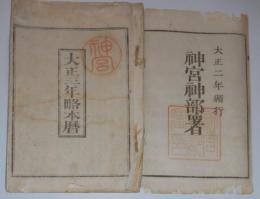 大正二年頒行
神宮神部署
神宮
大正三年略本暦